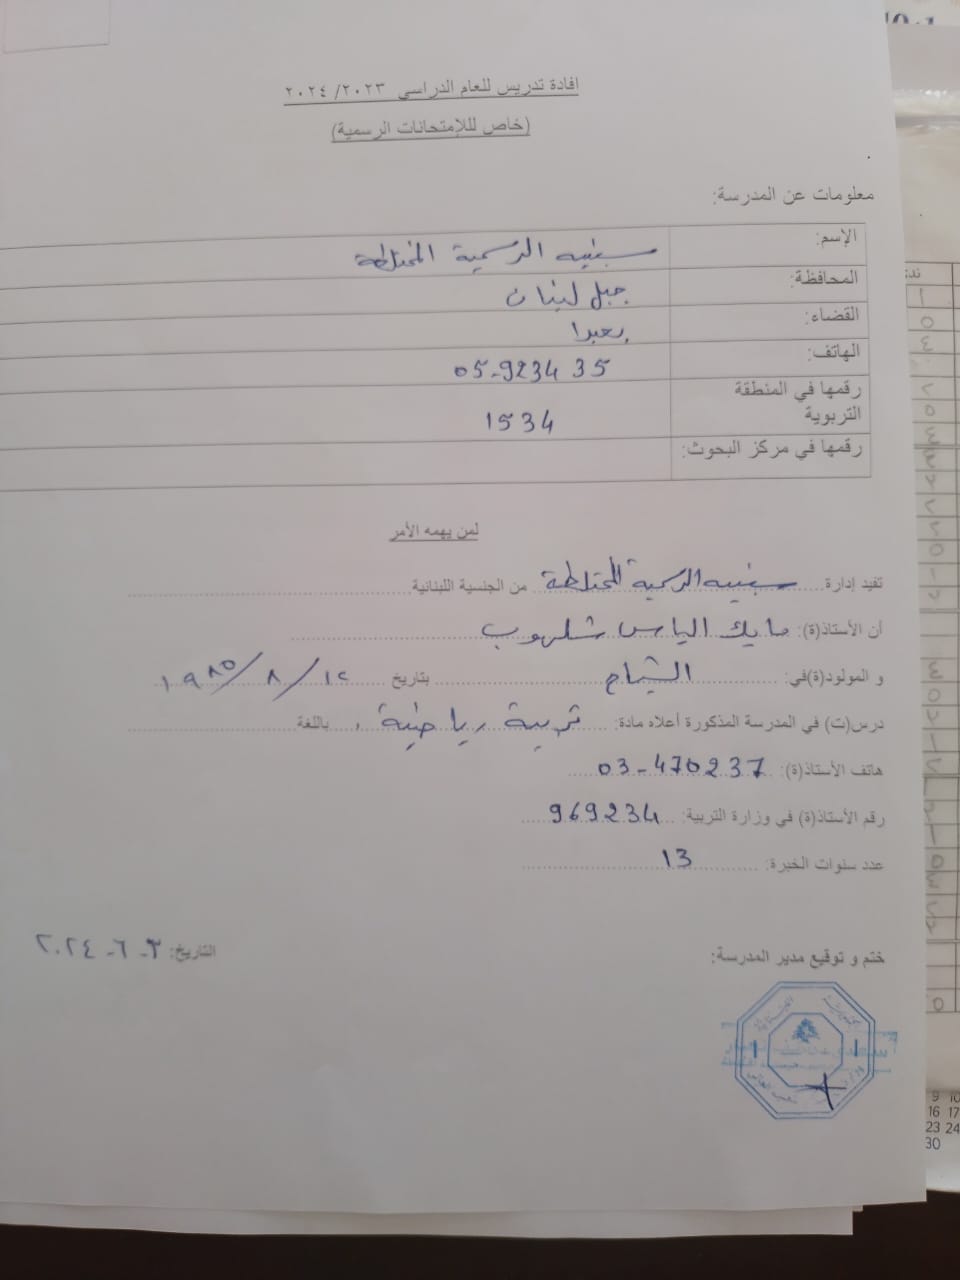 افادة تدريس للعام الدراسي ٢٠٢٣/ ٢٠٢٤
(خاص للإمتحانات الرسمية)
معلومات عن المدرسة:
الإسم: سبنيه الرسمية المختلطة
المحافظة: جبل لبنان
القضاء: بعبدا
الهاتف: 05-923435
رقمها في المنطقة
التربوية 1534
رقمها في مركز البحوث:
لمن يهمه الأمر
تفيد إدارة سبنيه الرسمية المختلطة من الجنسية اللبنانية
أن الأستاذ(ة): مايك الياس شلهوب
و المولود(ة)في: الشياح بتاريخ ١٢/ ٨/ ١٩٨٥
درس(ت) في المدرسة المذكورة أعلاه مادة: تربية رياضية، باللغة
هاتف الأستاذ(ة): 03-470237
رقم الأستاذ(ة) في وزارة التربية: 969234
عدد سنوات الخبرة: 13
ختم و توقيع مدير المدرسة:
التاريخ: ٣-٦-٢٠٢٤
9 10
16 17
23 24
30